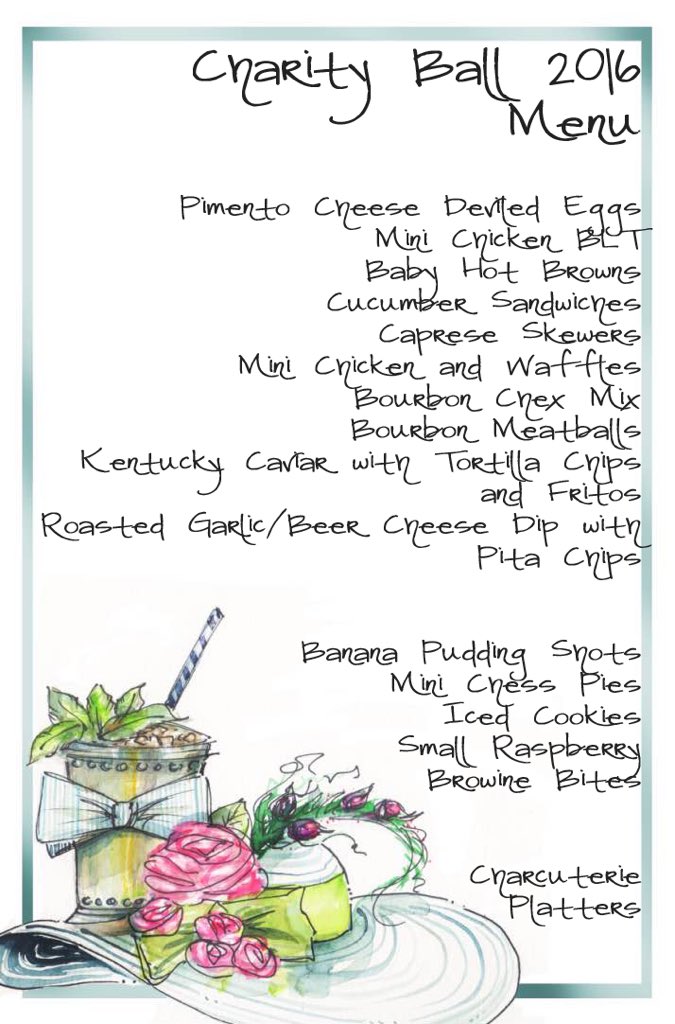 Charity Ball 2016
Menu
Pimento Cheese Deviled Eggs
Mini Chicken BLT
Baby Hot Browns
Cucumber Sandwiches
Caprese Skewers
Mini Chicken and Waffles
Bourbon Chex Mix
Bourbon Meatballs
Kentucky Caviar with Tortilla Chips
and Fritos
Roasted Garlic/Beer Cheese Dip with
Pita Chips
Banana Pudding Shots
Mini Chess Pies
Iced Cookies
Small Raspberry
Browine Bites
Charcuterie
Platters